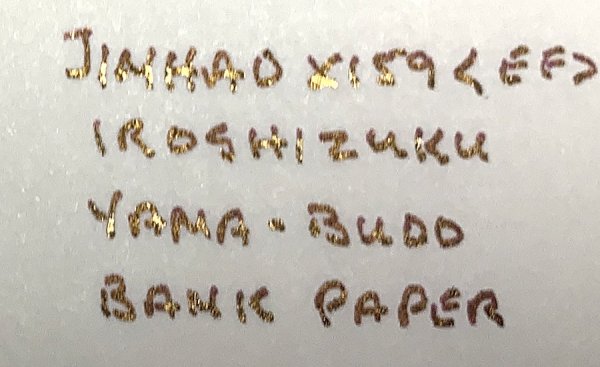 JINHAO X159 <EF>
IROSHIZUKU
YAMA-BUDO
BANK PAPER